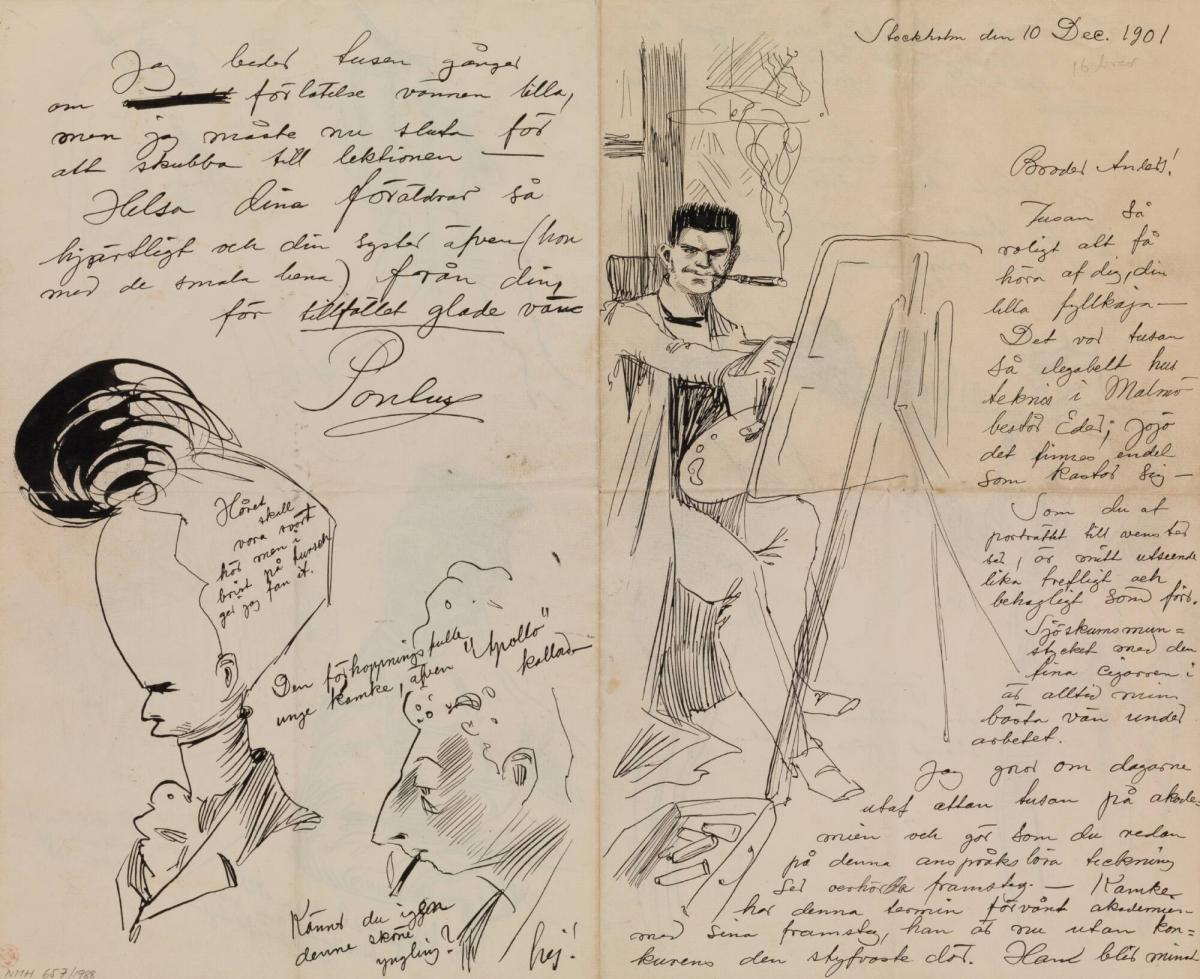 Stockholm den 10 Dec. 1901
16 brev
Broder Anders!
Tusan så
roligt att få
höra af dig, din
lilla fyllkaja —
Det var tusan
så elegabelt hus
teknis i Malmö
bestod Eder; jojo
det finnes endel
som kastar sig —
Som du af
porträttet till venster
ser, är mitt utseende
lika trefligt och
behagligt som förr.
Sjöskumsmun=
stycket med den
fina cigarren i
är alltid min
bästa vän under
arbetet.
Jag gnor om dagarne
utaf attan tusan på akade-
mien och gör som du redan
på denna anspråkslösa teckning
ser oerhörda framsteg. — Kamke
har denna termin förvånt akademien
med sina framsteg, han är nu utan kon=
kurens den styfvaste där. Hans blir mina
Jag beder tusen gånger
om förlåtelse vännen lilla,
men jag måste nu sluta för
att skubba till lektionen —
Helsa dina föräldrar så
hjärtligt och din syster äfven (hon
med de smala bena) från din,
för tillfället glade vän
Pontus
Håret
skall
vora svart
här men i
brist på tusch
ger jag fan it.
Den förhoppningsfulle
unge Kamke, äfven "Apollo"
kallad
Känner du igen
denne sköne
yngling?
hej!
NMH 657/1988